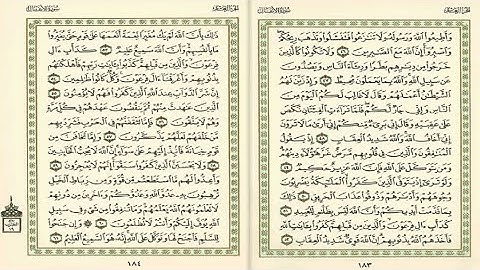 الجزء العاشر
سورة الأنفال
وأطيعوا الله ورسوله ولا تنازعوا فتفشلوا وتذهب ريحكم
واصبروا إن الله مع الصابرين ٤٦ ولا تكونوا كالذين
خرجوا من ديارهم بطرا ورئاء الناس ويصدون
عن سبيل الله والله بما يعملون محيط ٤٧ وإذ زين لهم
الشيطان أعمالهم وقال لا غالب لكم اليوم من
الناس وإني جار لكم فلما تراءت الفئتان نكص
على عقبيه وقال إني بريء منكم إني أرى ما لا ترون
إني أخاف الله والله شديد العقاب ٤٨ إذ يقول
المنافقون والذين في قلوبهم مرض غر هؤلاء دينهم
ومن يتوكل على الله فإن الله عزيز حكيم ٤٩
ولو ترى إذ يتوفى الذين كفروا الملائكة يضربون
وجوههم وأدبارهم وذوقوا عذاب الحريق ٥٠
ذلك بما قدمت أيديكم وأن الله ليس بظلام للعبيد ٥١
كدأب آل فرعون والذين من قبلهم كفروا بآيات الله
فأخذهم الله بذنوبهم إن الله قوي شديد العقاب ٥٢
١٨٣
الجزء العاشر
سورة الأنفال
ذلك بأن الله لم يك مغيرا نعمة أنعمها على قوم حتى يغيروا
ما بأنفسهم وأن الله سميع عليم ٥٣ كدأب آل
فرعون والذين من قبلهم كذبوا بآيات ربهم فأهلكناهم
بذنوبهم وأغرقنا آل فرعون وكل كانوا ظالمين ٥٤
إن شر الدواب عند الله الذين كفروا فهم لا يؤمنون ٥٥
الذين عاهدت منهم ثم ينقضون عهدهم في كل مرة
وهم لا يتقون ٥٦ فإما تثقفنهم في الحرب فشرد بهم
من خلفهم لعلهم يذكرون ٥٧ وإما تخافن من
قوم خيانة فانبذ إليهم على سواء إن الله لا يحب الخائنين ٥٨
ولا يحسبن الذين كفروا سبقوا إنهم لا يعجزون ٥٩
وأعدوا لهم ما استطعتم من قوة ومن رباط الخيل
ترهبون به عدو الله وعدوكم وآخرين من دونهم
لا تعلمونهم الله يعلمهم وما تنفقوا من شيء في سبيل
الله يوف إليكم وأنتم لا تظلمون ٦٠ وإن جنحوا
للسلم فاجنح لها وتوكل على الله إنه هو السميع العليم ٦١
١٨٤